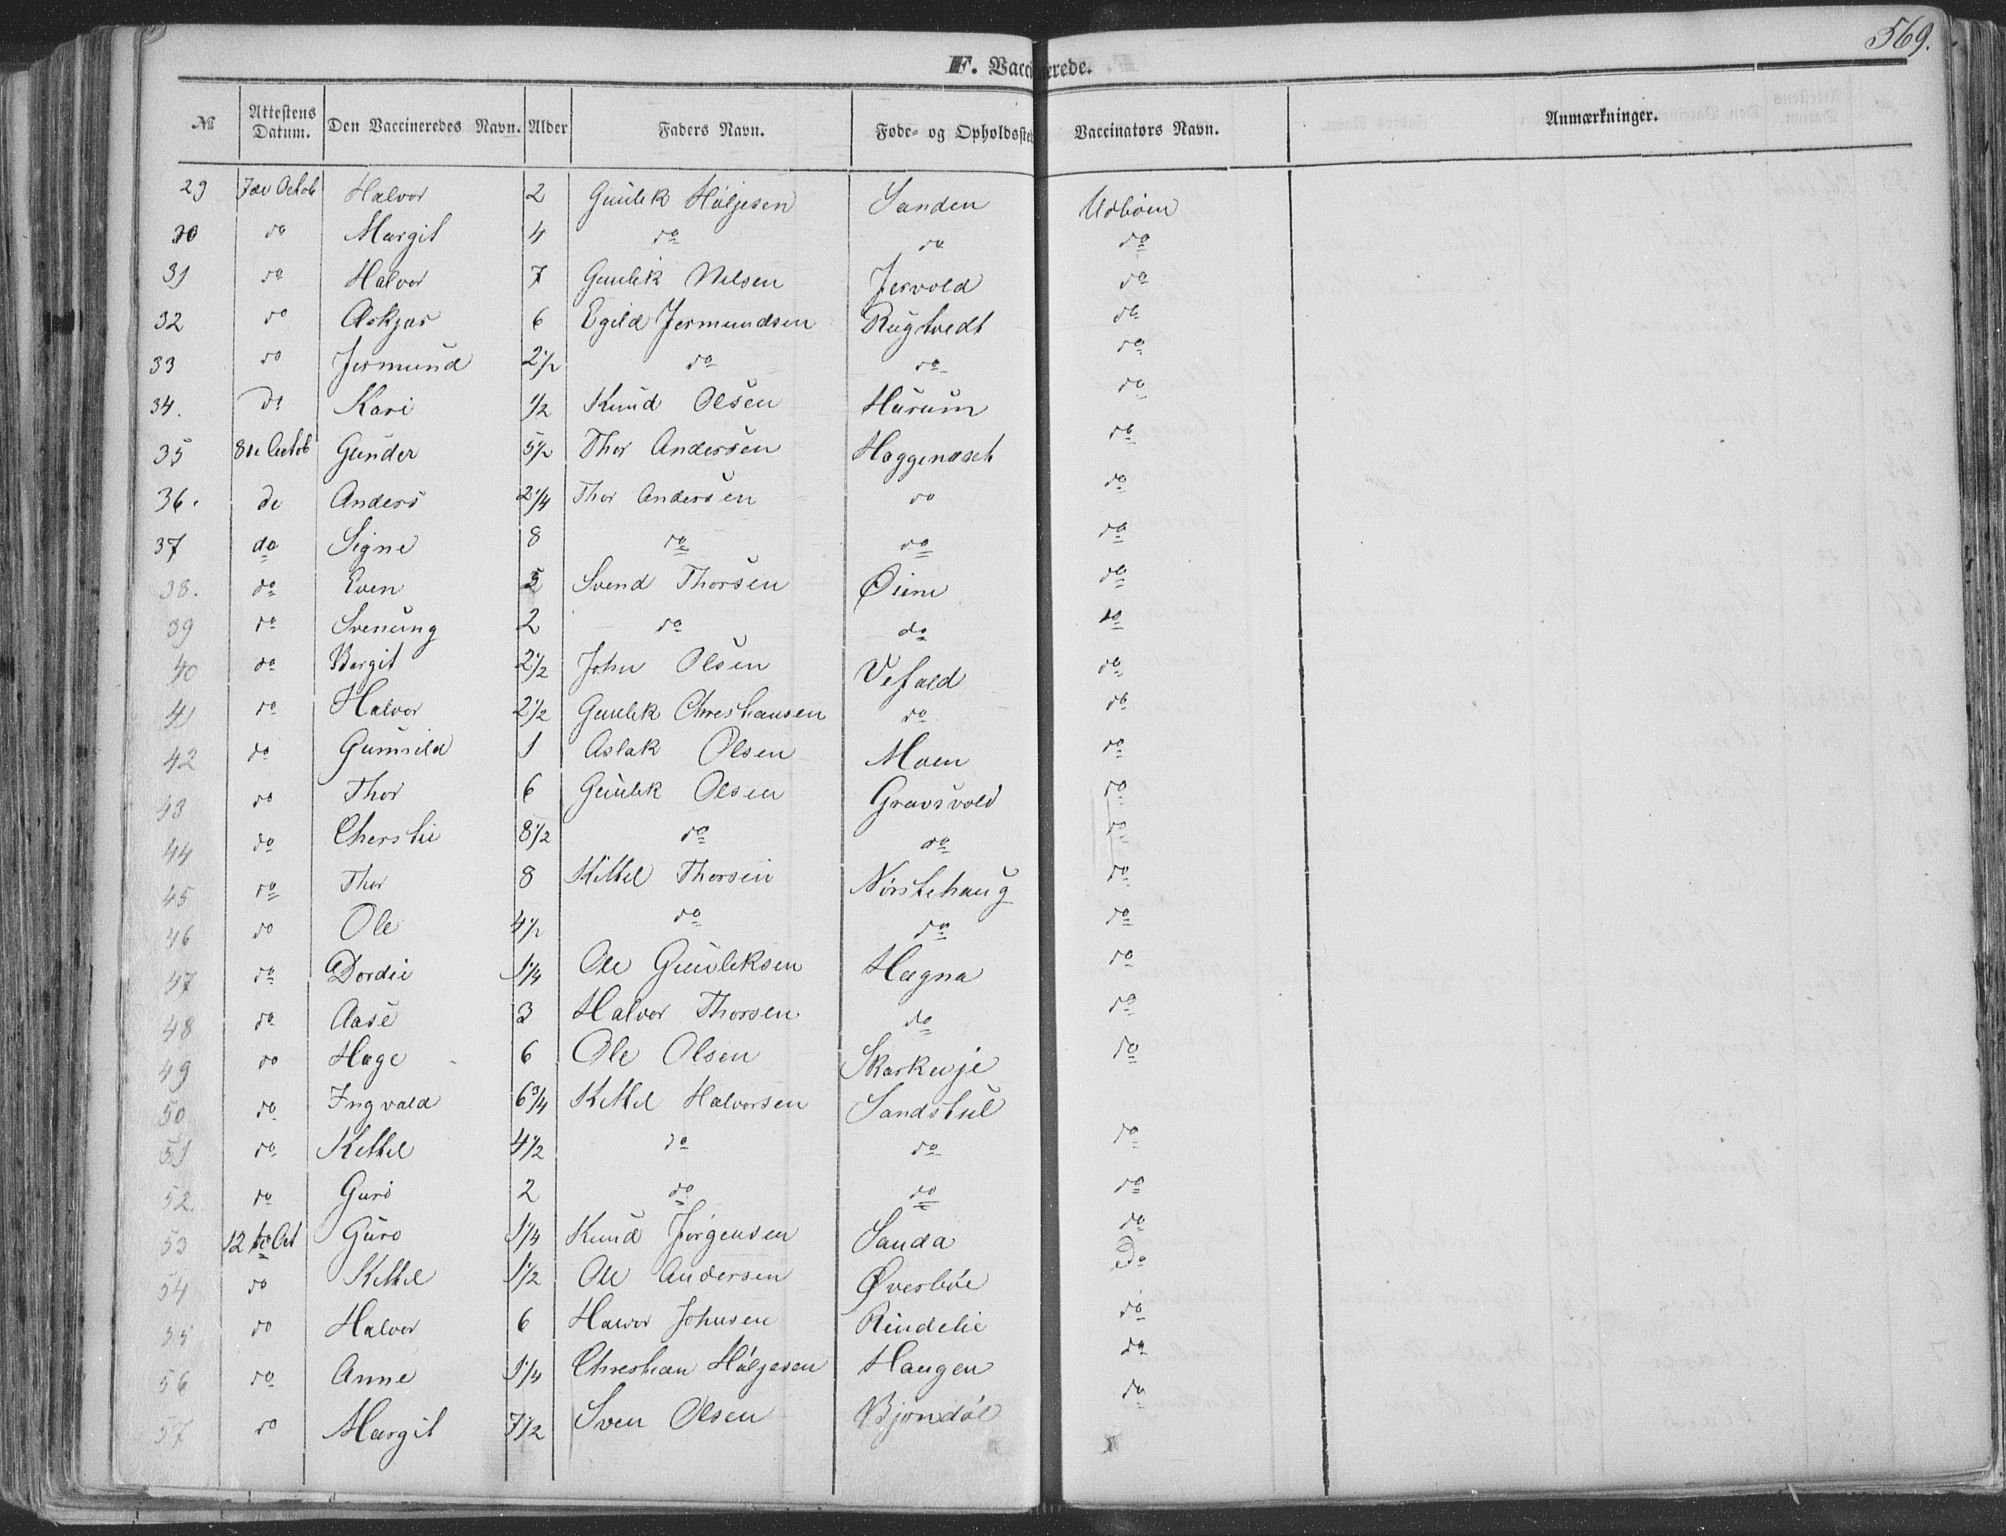 569.
F. Vaccinerede.
№ Attestens Datum. Den Vaccineredes Navn. Alder Faders Navn. Føde- og Opholdssted Vaccinators Navn. Anmærkninger.
29 7de Octob Halvor 2 Gunlek Høljesen Sanden Udbøen
30 do Margit 4 do do do
31 do Halvor 7 Gunlek Nilsen Jervold do
32 do Askjær 6 Egild Jermundsen Rugtvedt do
33 do Jermund 2 1/2 do do do
34. do Kari 1/2 Knud Olsen Hurum do
35 8de Octob Gunder 5 1/2 Thor Andersen Haggenæset do
36. do Anders 2 1/4 Thor Andersen do do
37 do Signe 8 do do do
38. do Even 5 Svend Thorsen Øien do
39 do Svenung 2 do do do
40 do Bergit 2 1/2 John Olsen Vefald do
41 do Halvor 2 1/2 Gunlek Christiansen do do
42 do Gunnild 1 Aslak Olsen Moen do
43 do Thor 6 Gunlek Olsen Gravsvold do
44 do Cherstie 8 1/2 do do do
45 do Thor 8 Kittel Thorsen Nørstehaug do
46 do Ole 4 1/2 do do do
47 do Dordie 1 1/4 Ole Gunleksen Hægna do
48 do Aase 3 Halvor Thorsen do do
49 do Hæge 6 Ole Olsen do
50 do Ingvald 6 3/4 Kittel Halvorsen Sandstul
51 do Kittel 4 1/2 do do do
52. do Guro 2 do do do
53 12te Oct Guro 1 1/4 Knud Jørgensen Sanda do
54 do Kittel 1 1/2 Ole Andersen Øverbøe Do
55 do Halvor 6 Halvor Johnsen Rindelie do
56 do Anne 1 1/4 Christian Høljesen Haugen do
57 do Margit 7 1/2 Sven Olsen Bjøndøl do